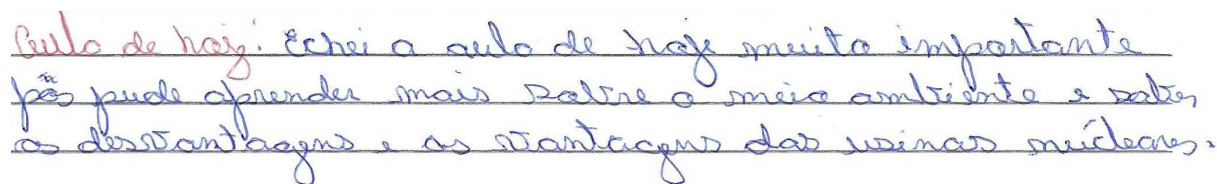 Aula de hoj: Echei a aula de hoje muito importante
pôs pude aprender mais sobre o meio ambiente e saber
as desvantagens e as vantagens das usinas núcleares.